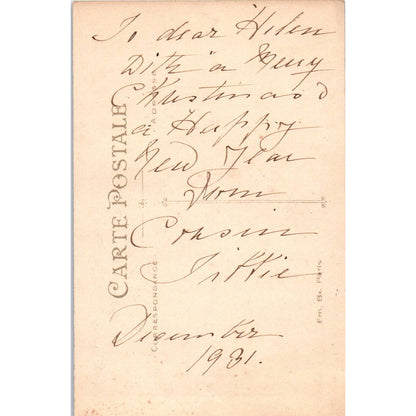 To dear Helen
With a Merry
Christmas &
a Happy
New Year
From
Cousin
Tittie
December
1931.
CARTE POSTALE
CORRESPONDANCE
ADRESSE
Em. Bx. Paris